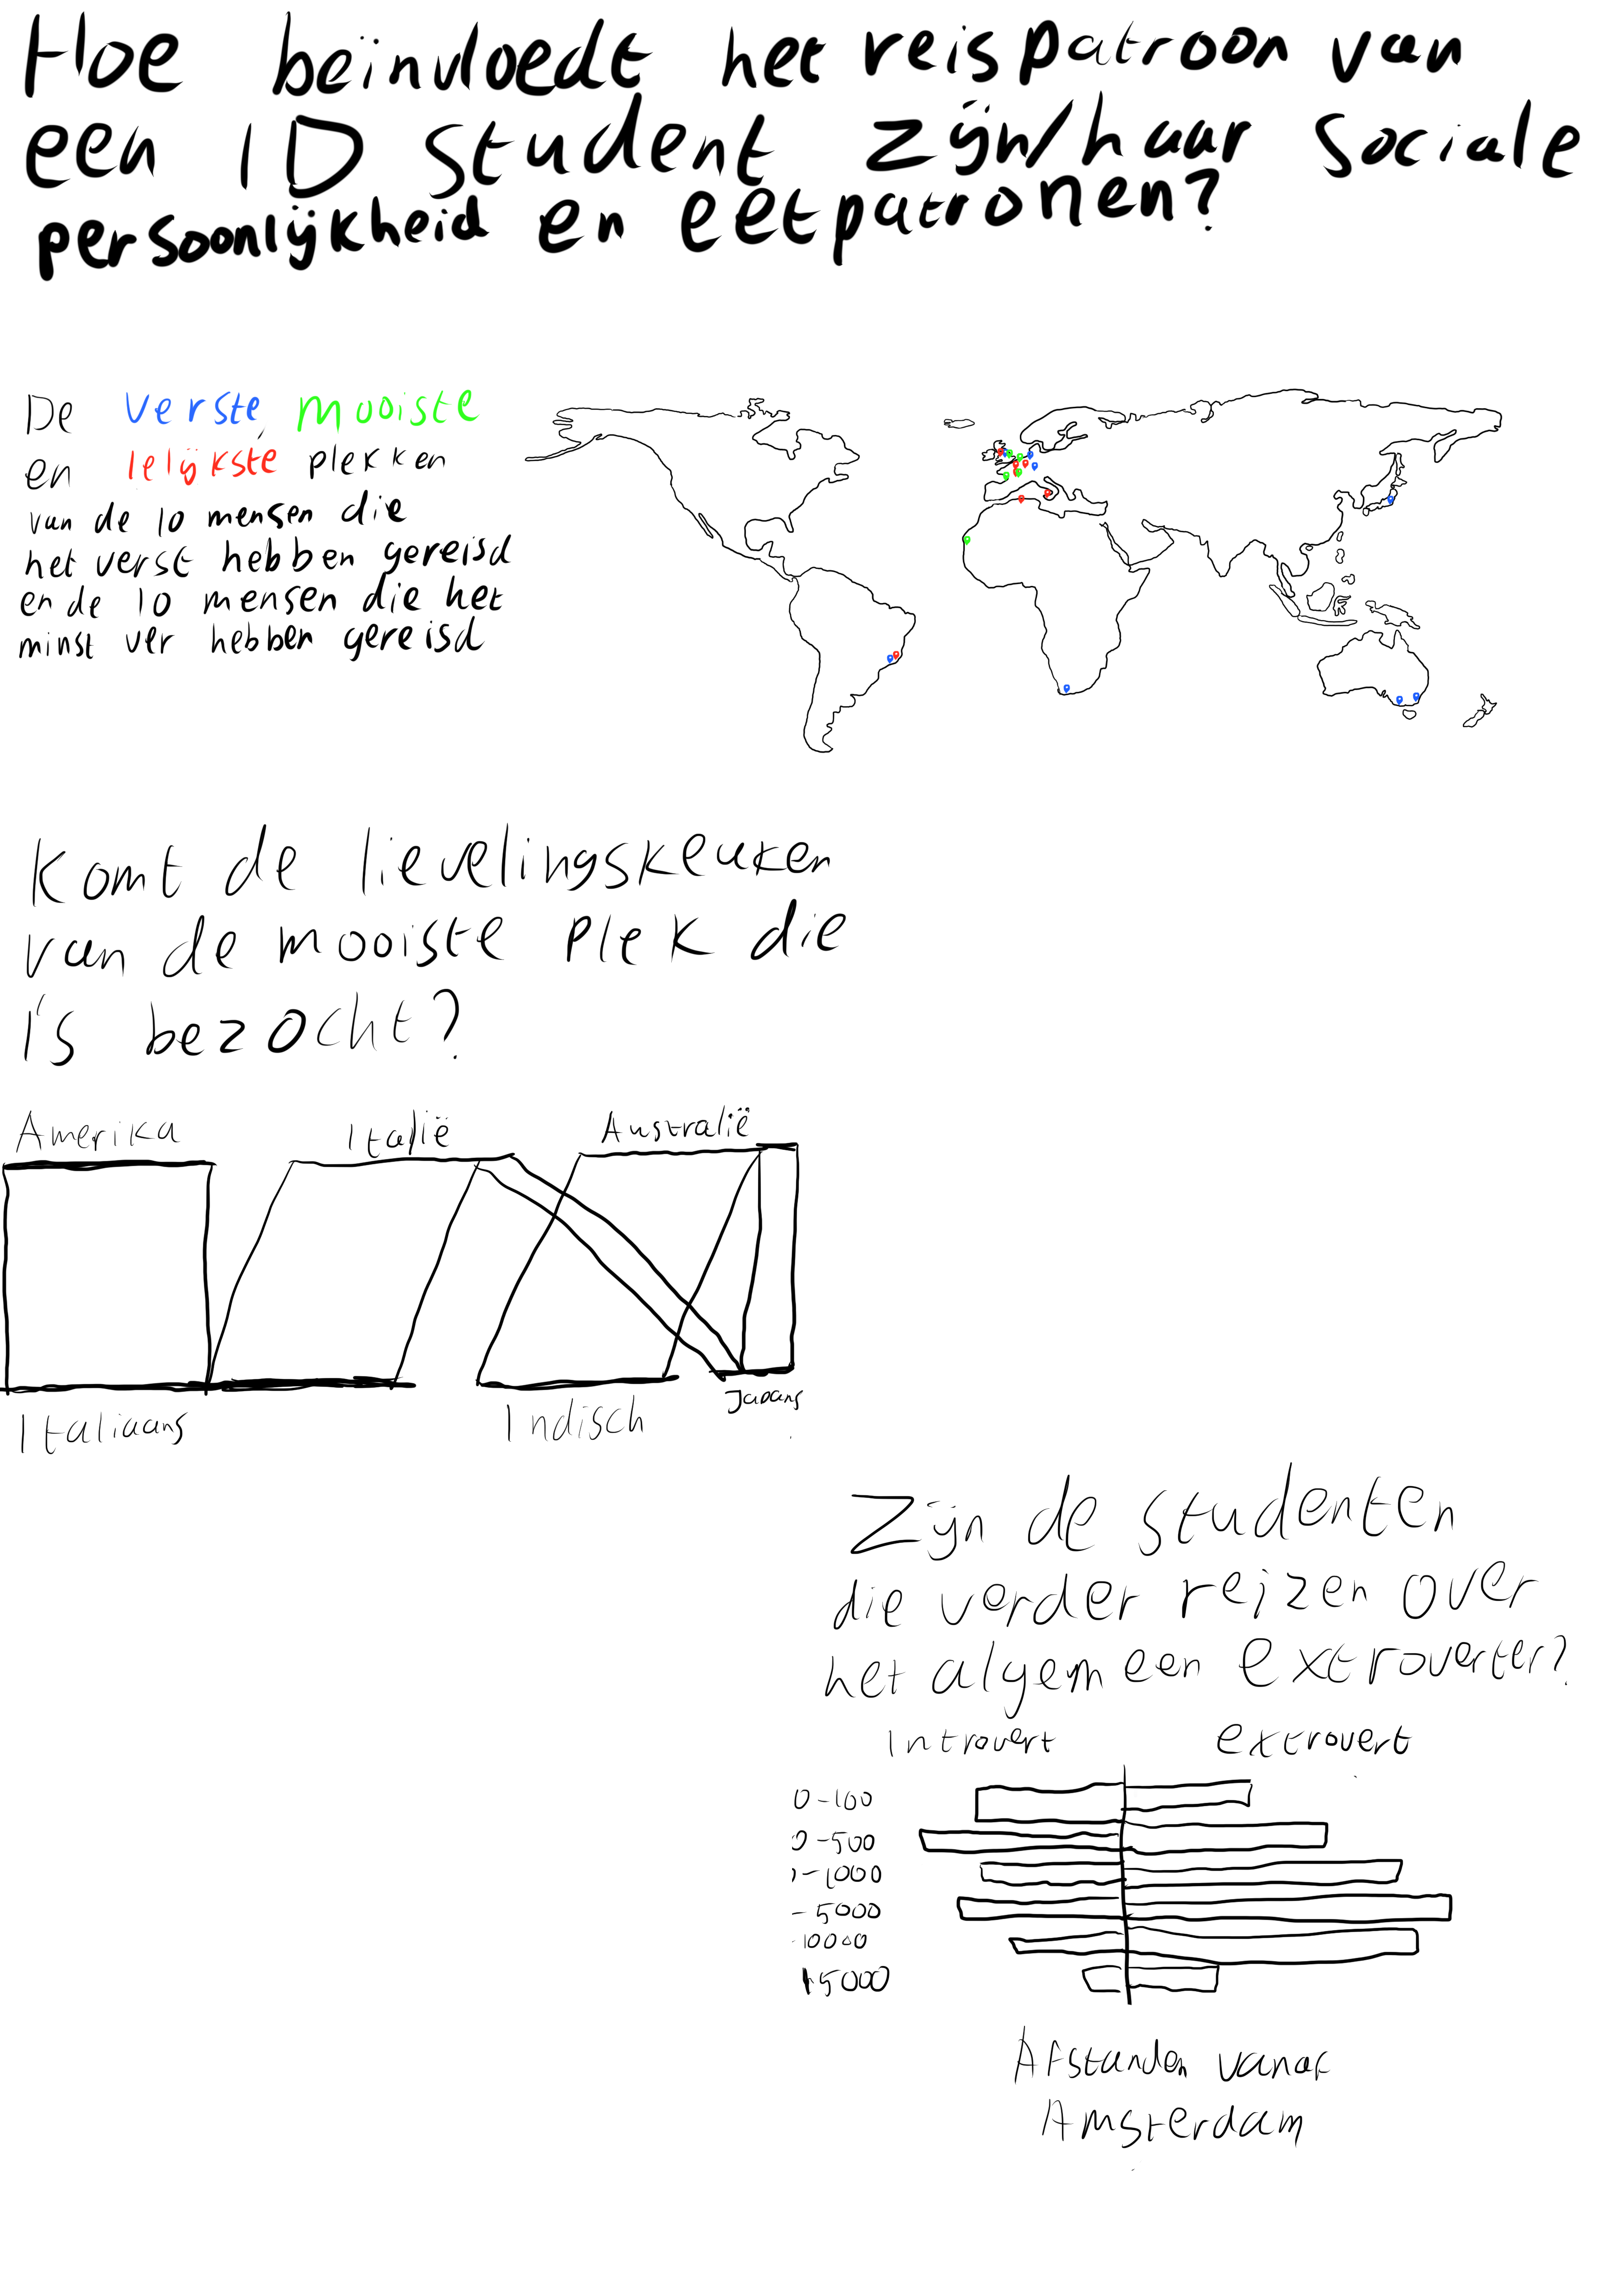 Hoe beïnvloedt het reispatroon van
een ID student zijn/haar sociale
persoonlijkheid en eetpatronen?
De verste, mooiste
en lelijkste plekken
van de 10 mensen die
het verst hebben gereisd
en de 10 mensen die het
minst ver hebben gereisd
Komt de lievelingskeuken
van de mooiste plek die
is bezocht?
Amerika Italië Australië
Italiaans Indisch Japans
Zijn de studenten
die verder reizen over
het algemeen extroverter?
Introvert extrovert
0-100
0-500
-1000
-5000
-10000
15000
Afstanden vanaf
Amsterdam